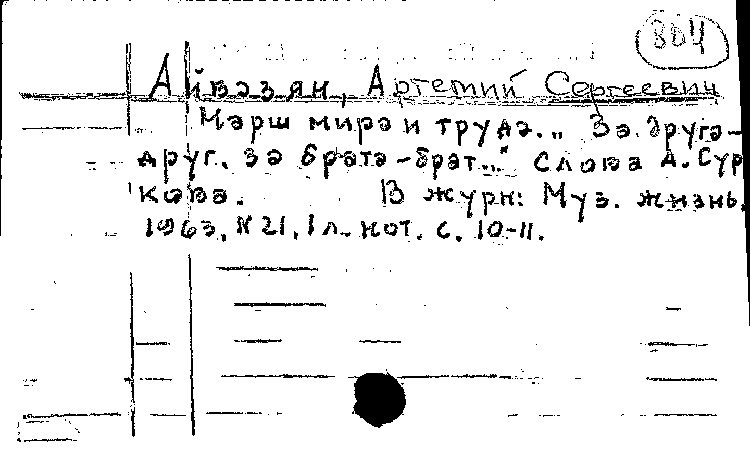 804
Айвазян, Артемий Сергеевич
Марш мира и труда. „За друга-
друг. За брата-брат..." Слова А. Сур
кова. В журн: Муз. жизнь.
1963, N 21, 1 л. нот. с. 10-11.